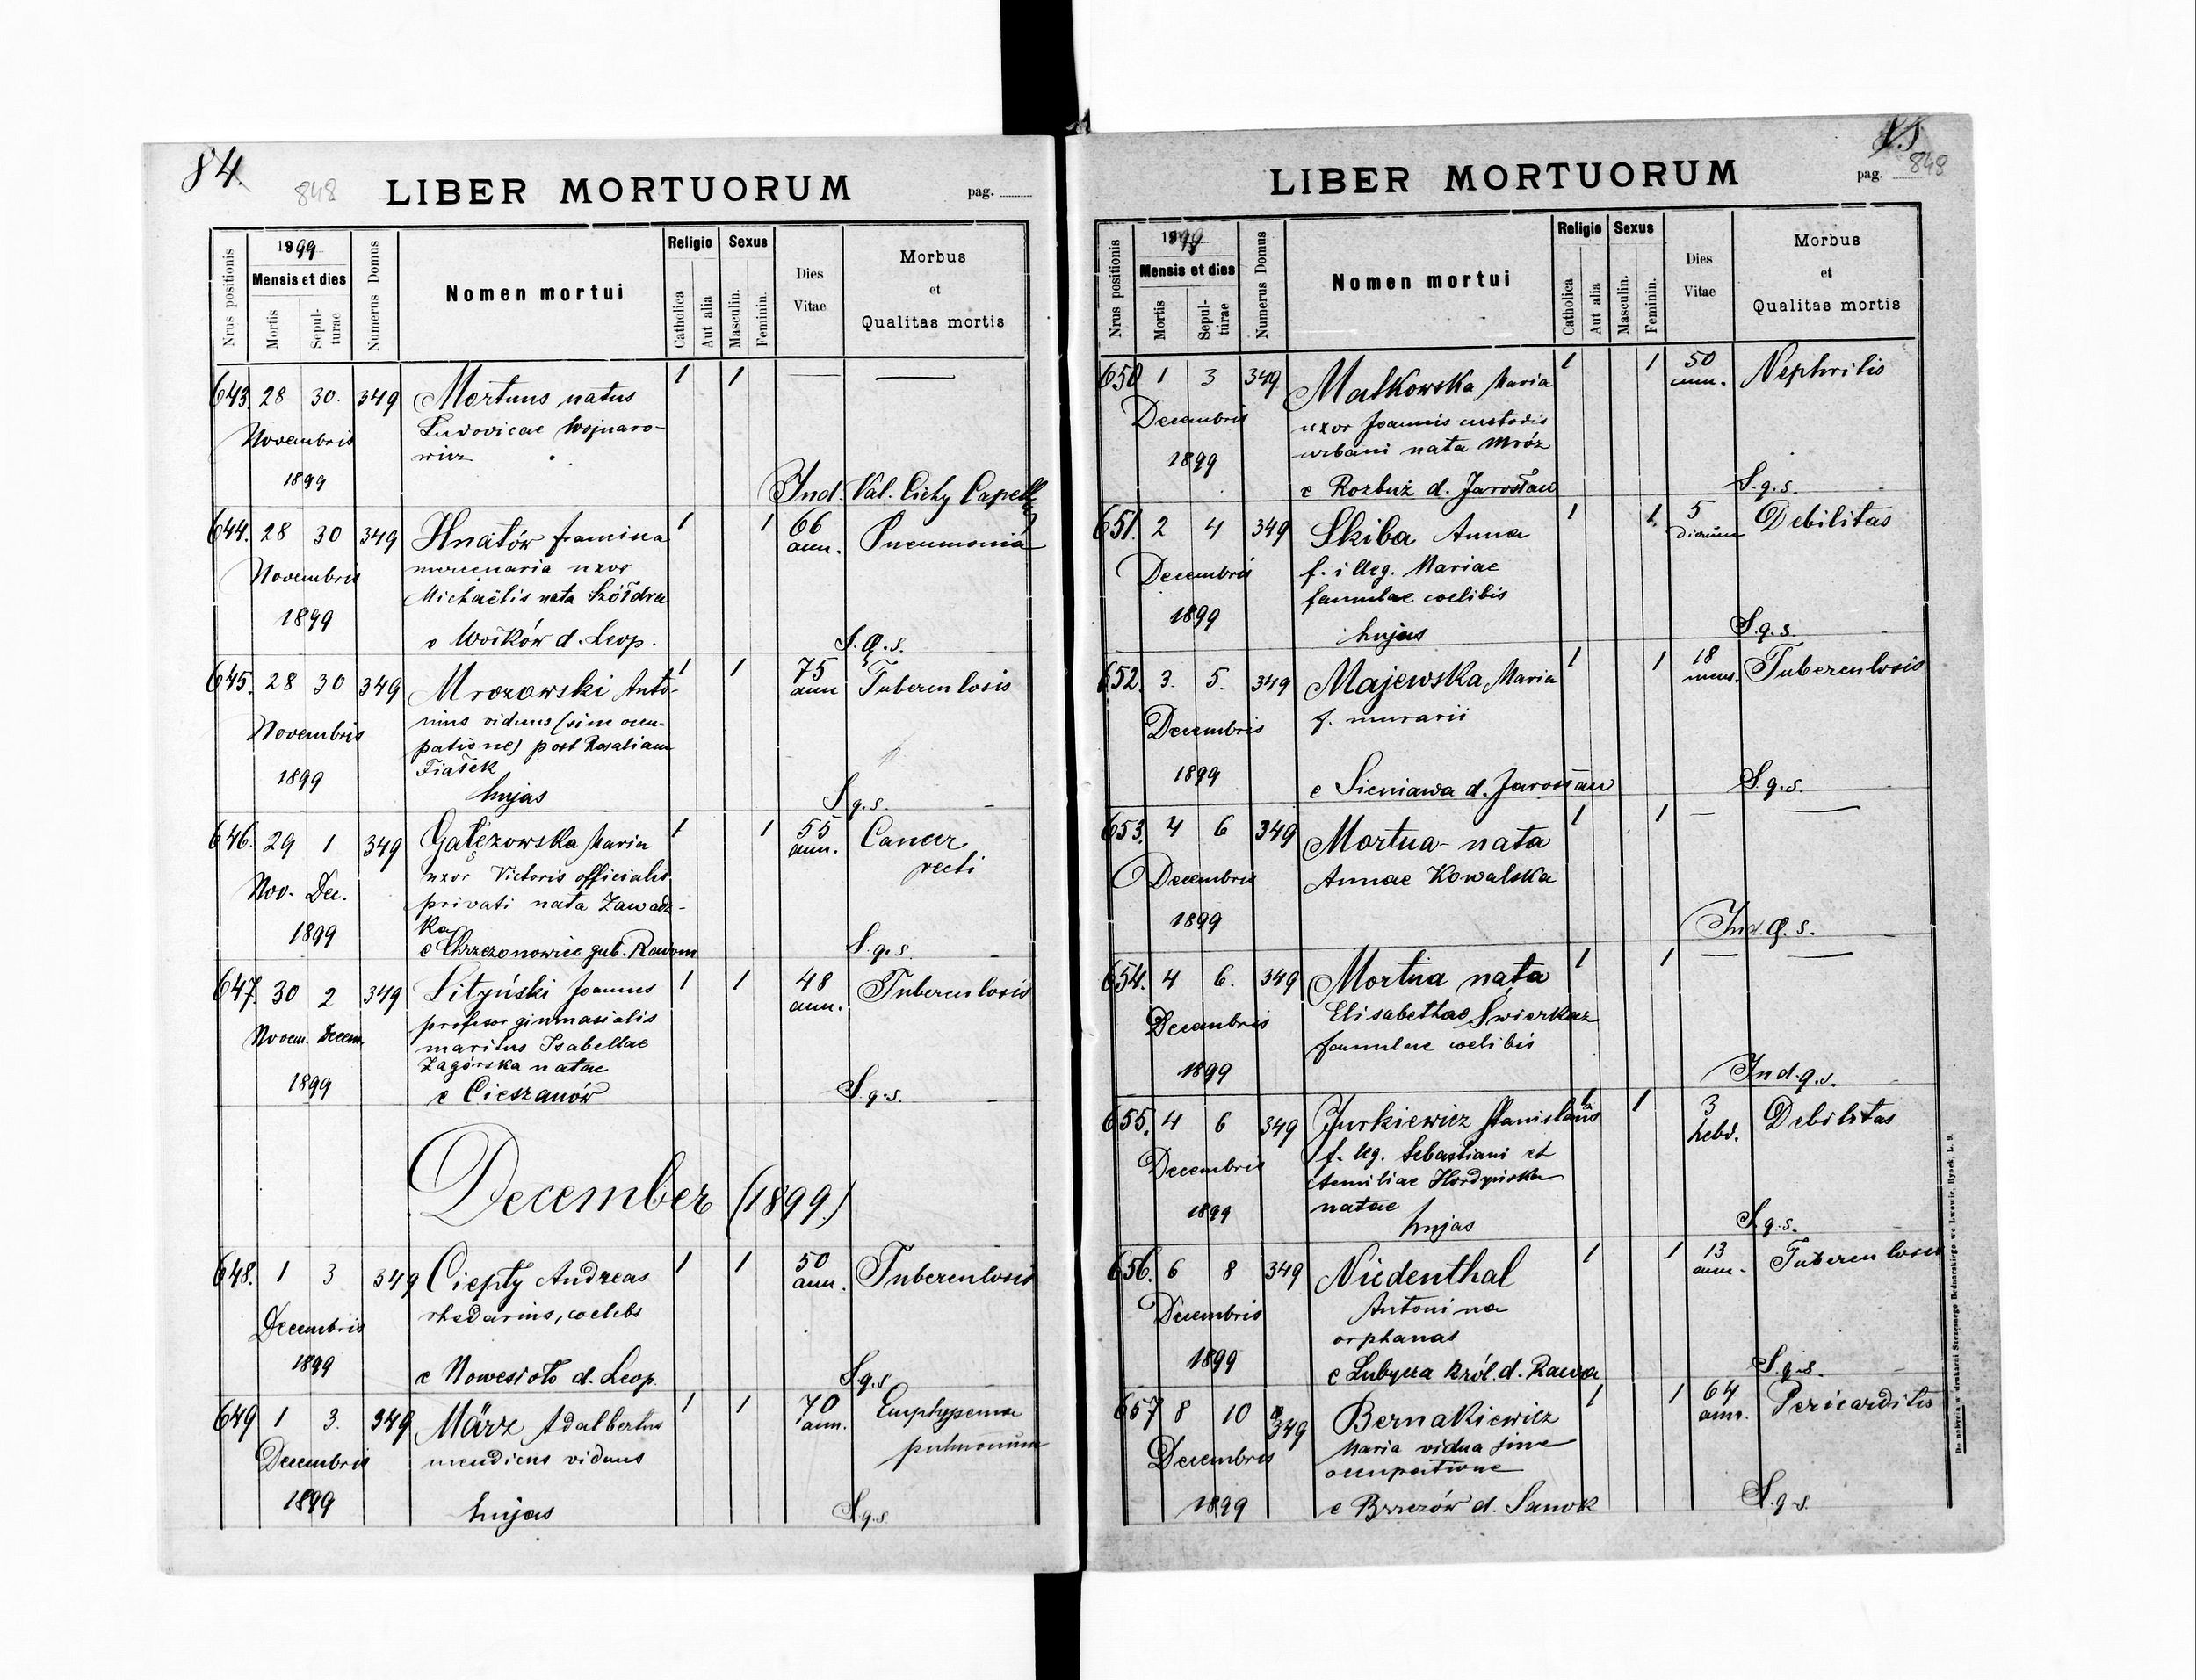 84.
848
LIBER MORTUORUM
pag.
Nrus positionis
1899
Mensis et dies
Mortis
Sepul-
turae
Numerus Domus
Nomen mortui
Religio
Catholica
Aut alia
Sexus
Masculin.
Feminin.
Dies
Vitae
Morbus
et
Qualitas mortis
643. 28 30. 349 Mortuus natus 1 1
Ludovicae Wojnaro-
Novembris
wicz
1899
Ind. Val. Cichy Capell
644. 28 30 349 Hnatów francisca 1 1 66 ann. Pneumonia
mercenaria uxor
Novembris
Michaëlis nata Szóldra
1899
e Wolków d. Leop. S. Q. s.
645. 28 30 349 Mrozowski Anto- 1 1 75 ann Tuberculosis
nius viduus (sine occu-
Novembris
patione) post Rosaliam
Fiałek
1899
hujas S. q. s.
646. 29 1 349 Gałęzowska Maria 1 1 55 ann. Cancer
recti
uxor Victoris officialis
Nov. Dec.
privati nata Zawadz-
ka
1899
e Chrzczonowice gub. Radom S. q. s.
647. 30 2 349 Lityński Joannes 1 1 48 ann. Tuberculosis
profesor gimnasialis
Novem. Decem.
maritus Isabellae
Zagórska natae
1899
e Cieszanów S. q. s.
December (1899)
648. 1 3 349 Ciepły Andreas 1 1 50 ann. Tuberculosis
rhedarius, coelebs
Decembris
1899
e Nowesioło d. Leop. S. q. s
649 1 3. 349 März Adalbertus 1 1 70 ann. Emphysema
pulmonum
Decembris
mendicus viduus
1899
hujas S. q. s
849
LIBER MORTUORUM
pag.
Nrus positionis
1899
Mensis et dies
Mortis
Sepul-
turae
Numerus Domus
Nomen mortui
Religio
Catholica
Aut alia
Sexus
Masculin.
Feminin.
Dies
Vitae
Morbus
et
Qualitas mortis
650 1 3 349 Malkowska Maria 1 1 50 ann. Nephritis
Decembris
uxor Joannis custodis
urbani nata Mróz
1899
e Rozbuż d. Jarosław S. q. s.
651. 2 4 349 Skiba Anna 1 1 5 dierum Debilitas
Decembris
f. illeg. Mariae
famulae coelibis
1899
hujas S. q. s.
652. 3. 5. 349 Majewska Maria 1 1 18 mens. Tuberculosis
f. murarii
Decembris
1899
e Sieniawa d. Jarosław S. q. s.
653. 4 6 349 Mortua-nata 1 1 —
Decembris
Annae Kowalska
1899
Ind. Q. s.
654. 4 6. 349 Mortua nata 1 1 —
Elisabethae Świerkaz
Decembris
famulae coelibis
1899
Ind. q. s.
655. 4 6 349 Jurkiewicz Stanislaus 1 1 3 hebd. Debilitas
f. leg. Sebastiani et
Decembris
Aemiliae Hordyńska
natae
1899
hujas S. q. s.
656. 6 8 349 Niedenthal 1 1 13 ann. Tuberculosis
Antonina
Decembris
orphanas
1899
e Lubycza król. d. Rawa S. q. s
657 8 10 349 Bernakiewicz 1 1 64 ann. Pericarditis
Maria vidua sine
Decembris
occupatione
1899
e Brzezów d. Sanok S. q. s.
Do nabycia w drukarni Szczęsnego Bednarskiego we Lwowie, Rynek, L. 9.